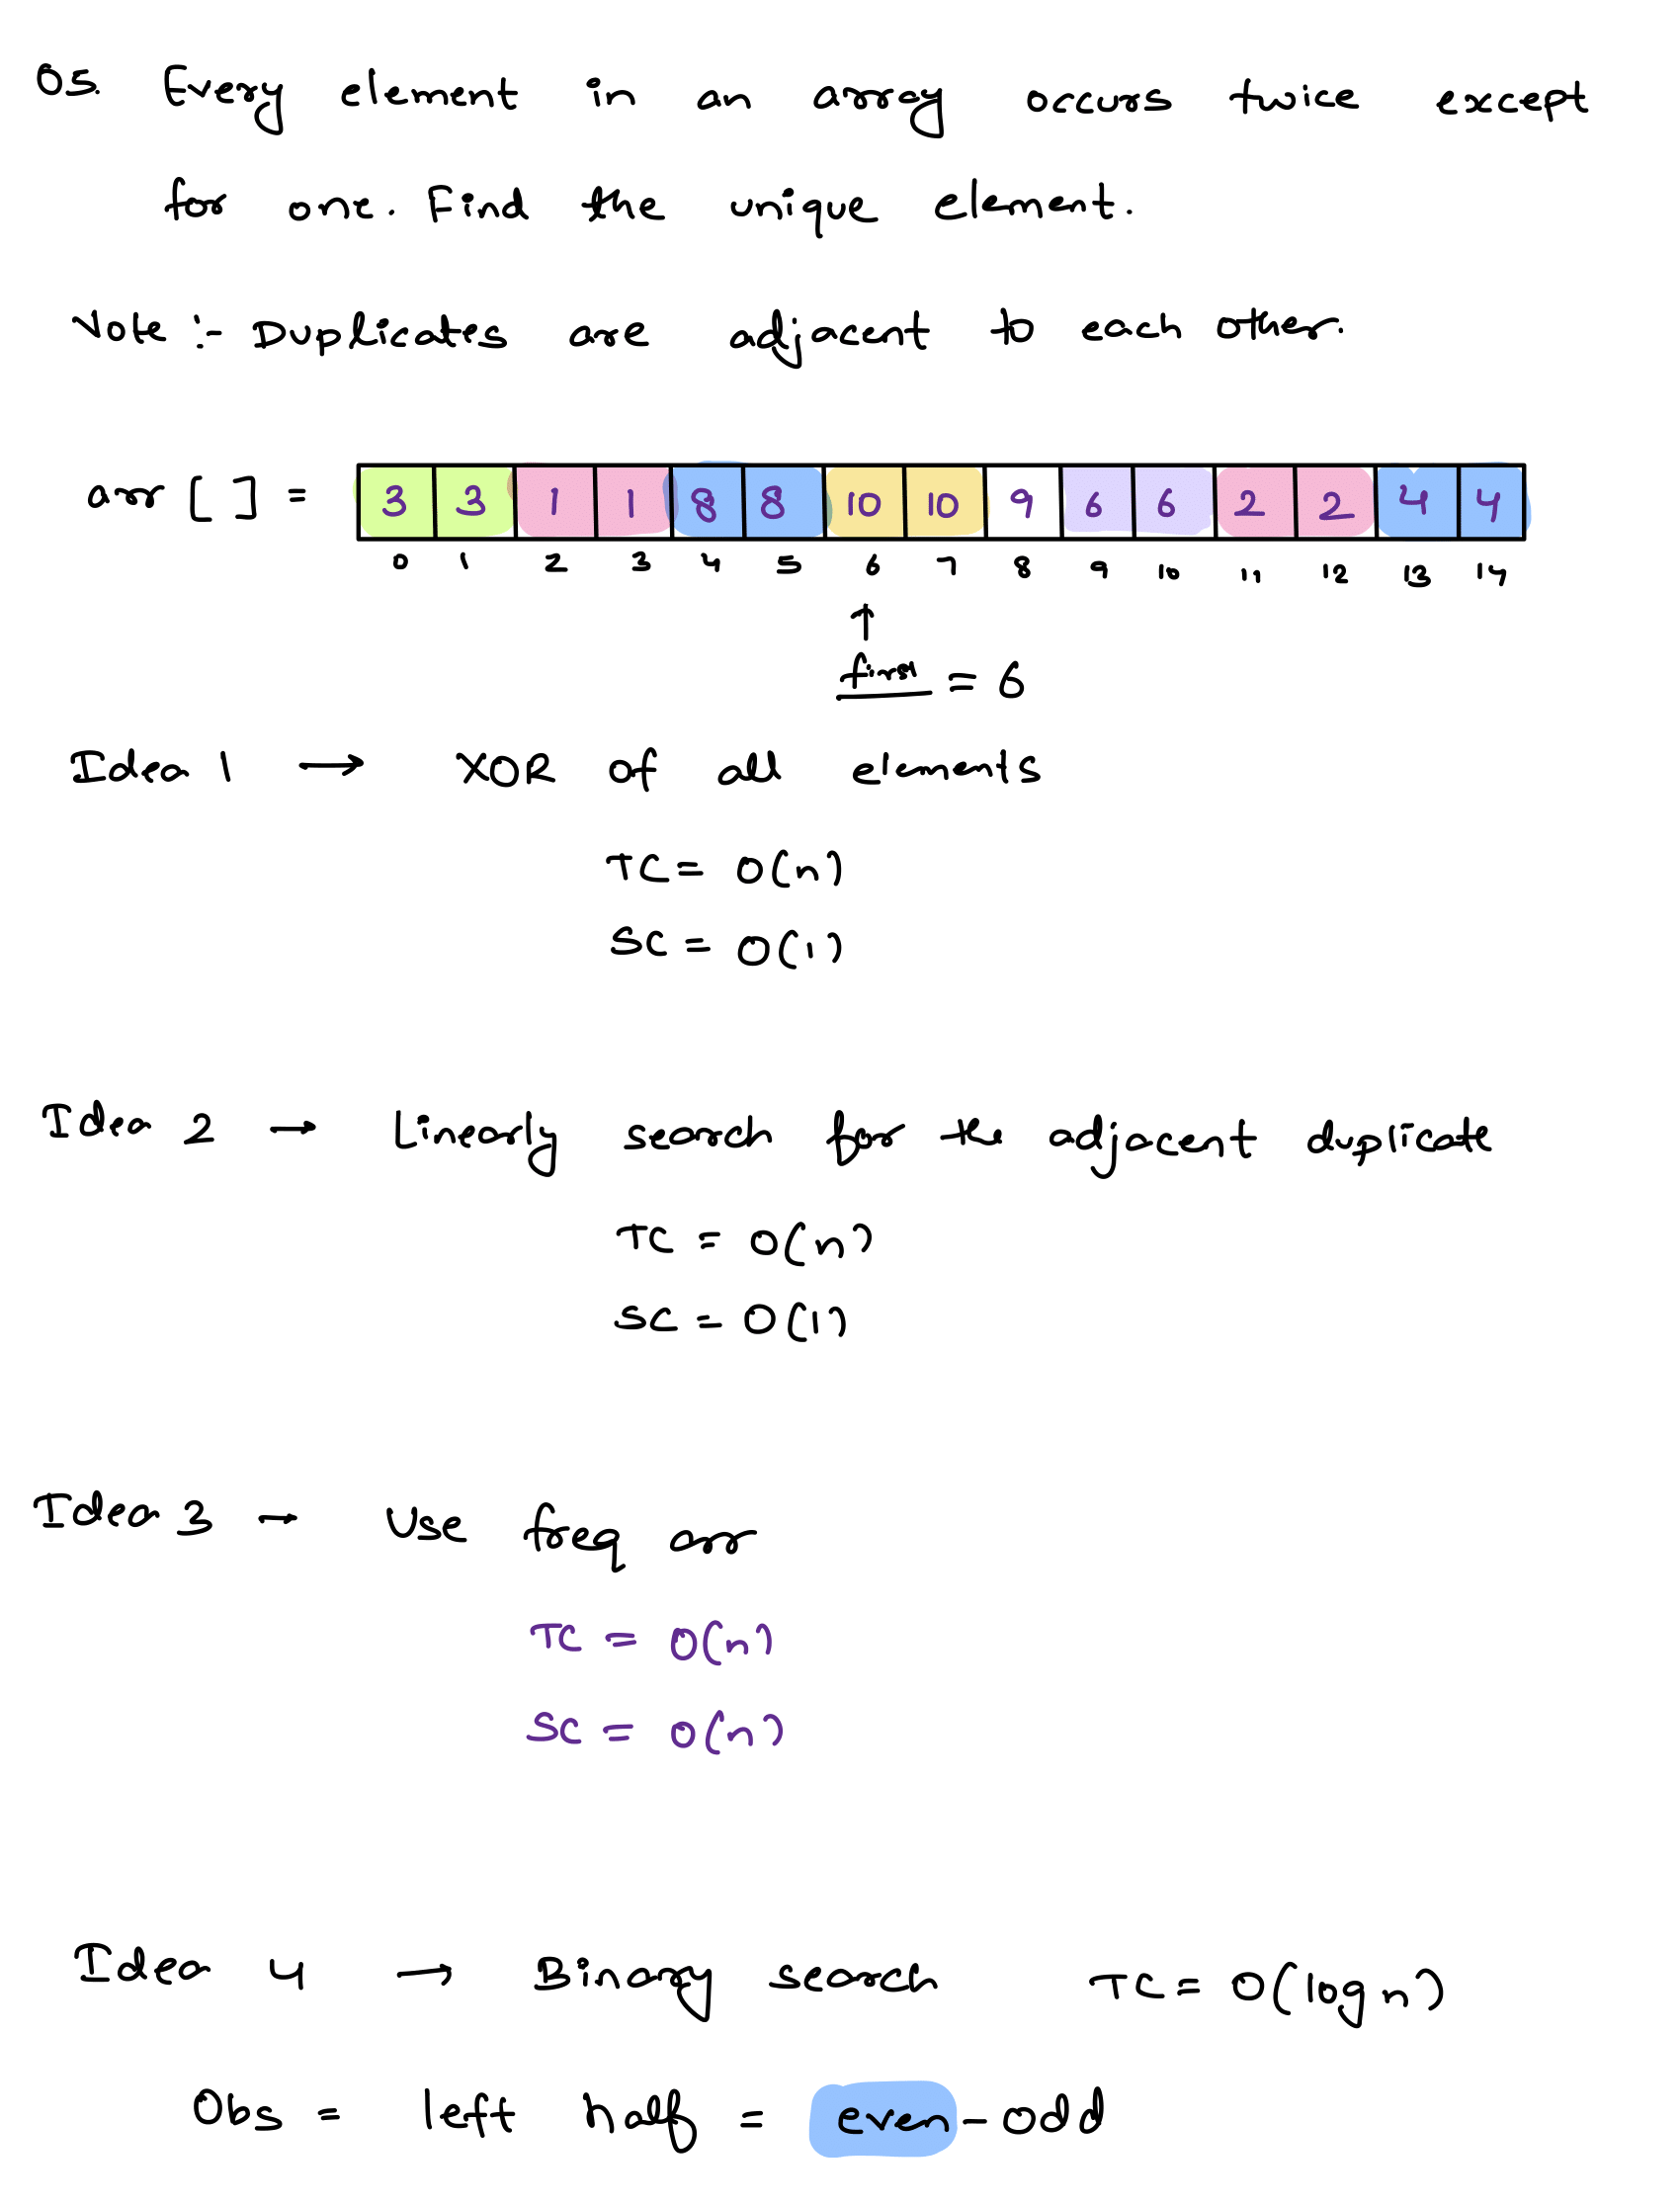 Q5. Every element in an array occurs twice except
for one. Find the unique element.
Note :- Duplicates are adjacent to each other.
arr [ ] = 3 3 1 1 8 8 10 10 9 6 6 2 2 4 4
0 1 2 3 4 5 6 7 8 9 10 11 12 13 14
↑
first = 6
Idea 1 → XOR of all elements
TC = O(n)
SC = O(1)
Idea 2 → Linearly search for the adjacent duplicate
TC = O(n)
SC = O(1)
Idea 3 → Use freq arr
TC = O(n)
SC = O(n)
Idea 4 → Binary search TC = O(log n)
Obs = left half = even-odd